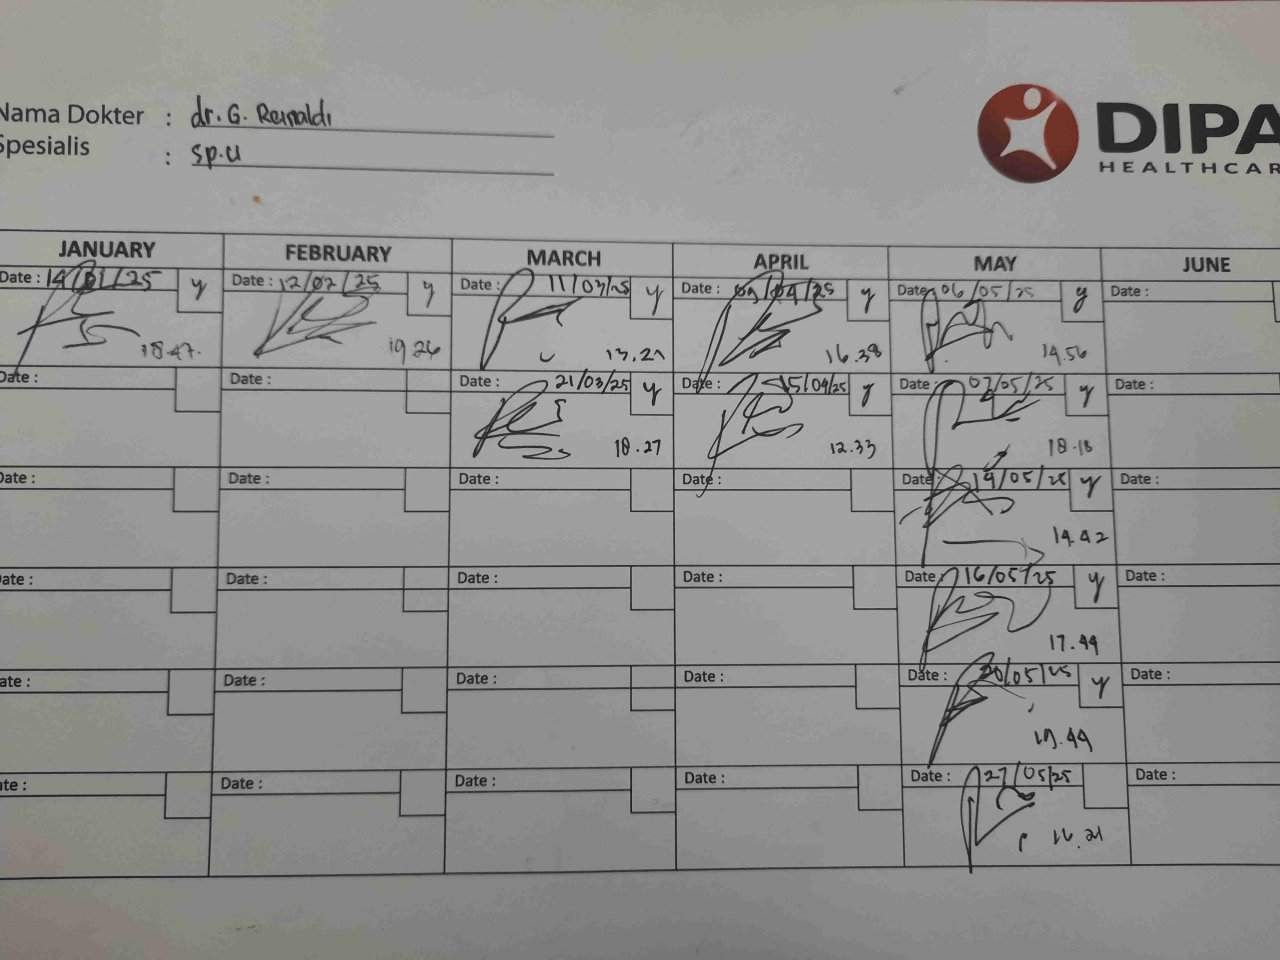 Nama Dokter : dr. G. Reinaldi
Spesialis : Sp.U
DIPA
HEALTHCAR
JANUARY FEBRUARY MARCH APRIL MAY JUNE
Date : 14/01/25 y Date : 12/02/25 y Date : 11/03/25 y Date : 09/04/25 y Date : 06/05/25 y Date :
18.47. 19.26 13.27 16.38 14.56
Date : Date : Date : 21/03/25 y Date : 15/04/25 y Date : 07/05/25 y Date :
18.27 12.33 18.18
Date : Date : Date : Date : Date : 14/05/25 y Date :
14.42
Date : Date : Date : Date : Date : 16/05/25 y Date :
17.44
ate : Date : Date : Date : Date : 20/05/25 y Date :
19.44
ate : Date : Date : Date : Date : 27/05/25 Date :
16.21